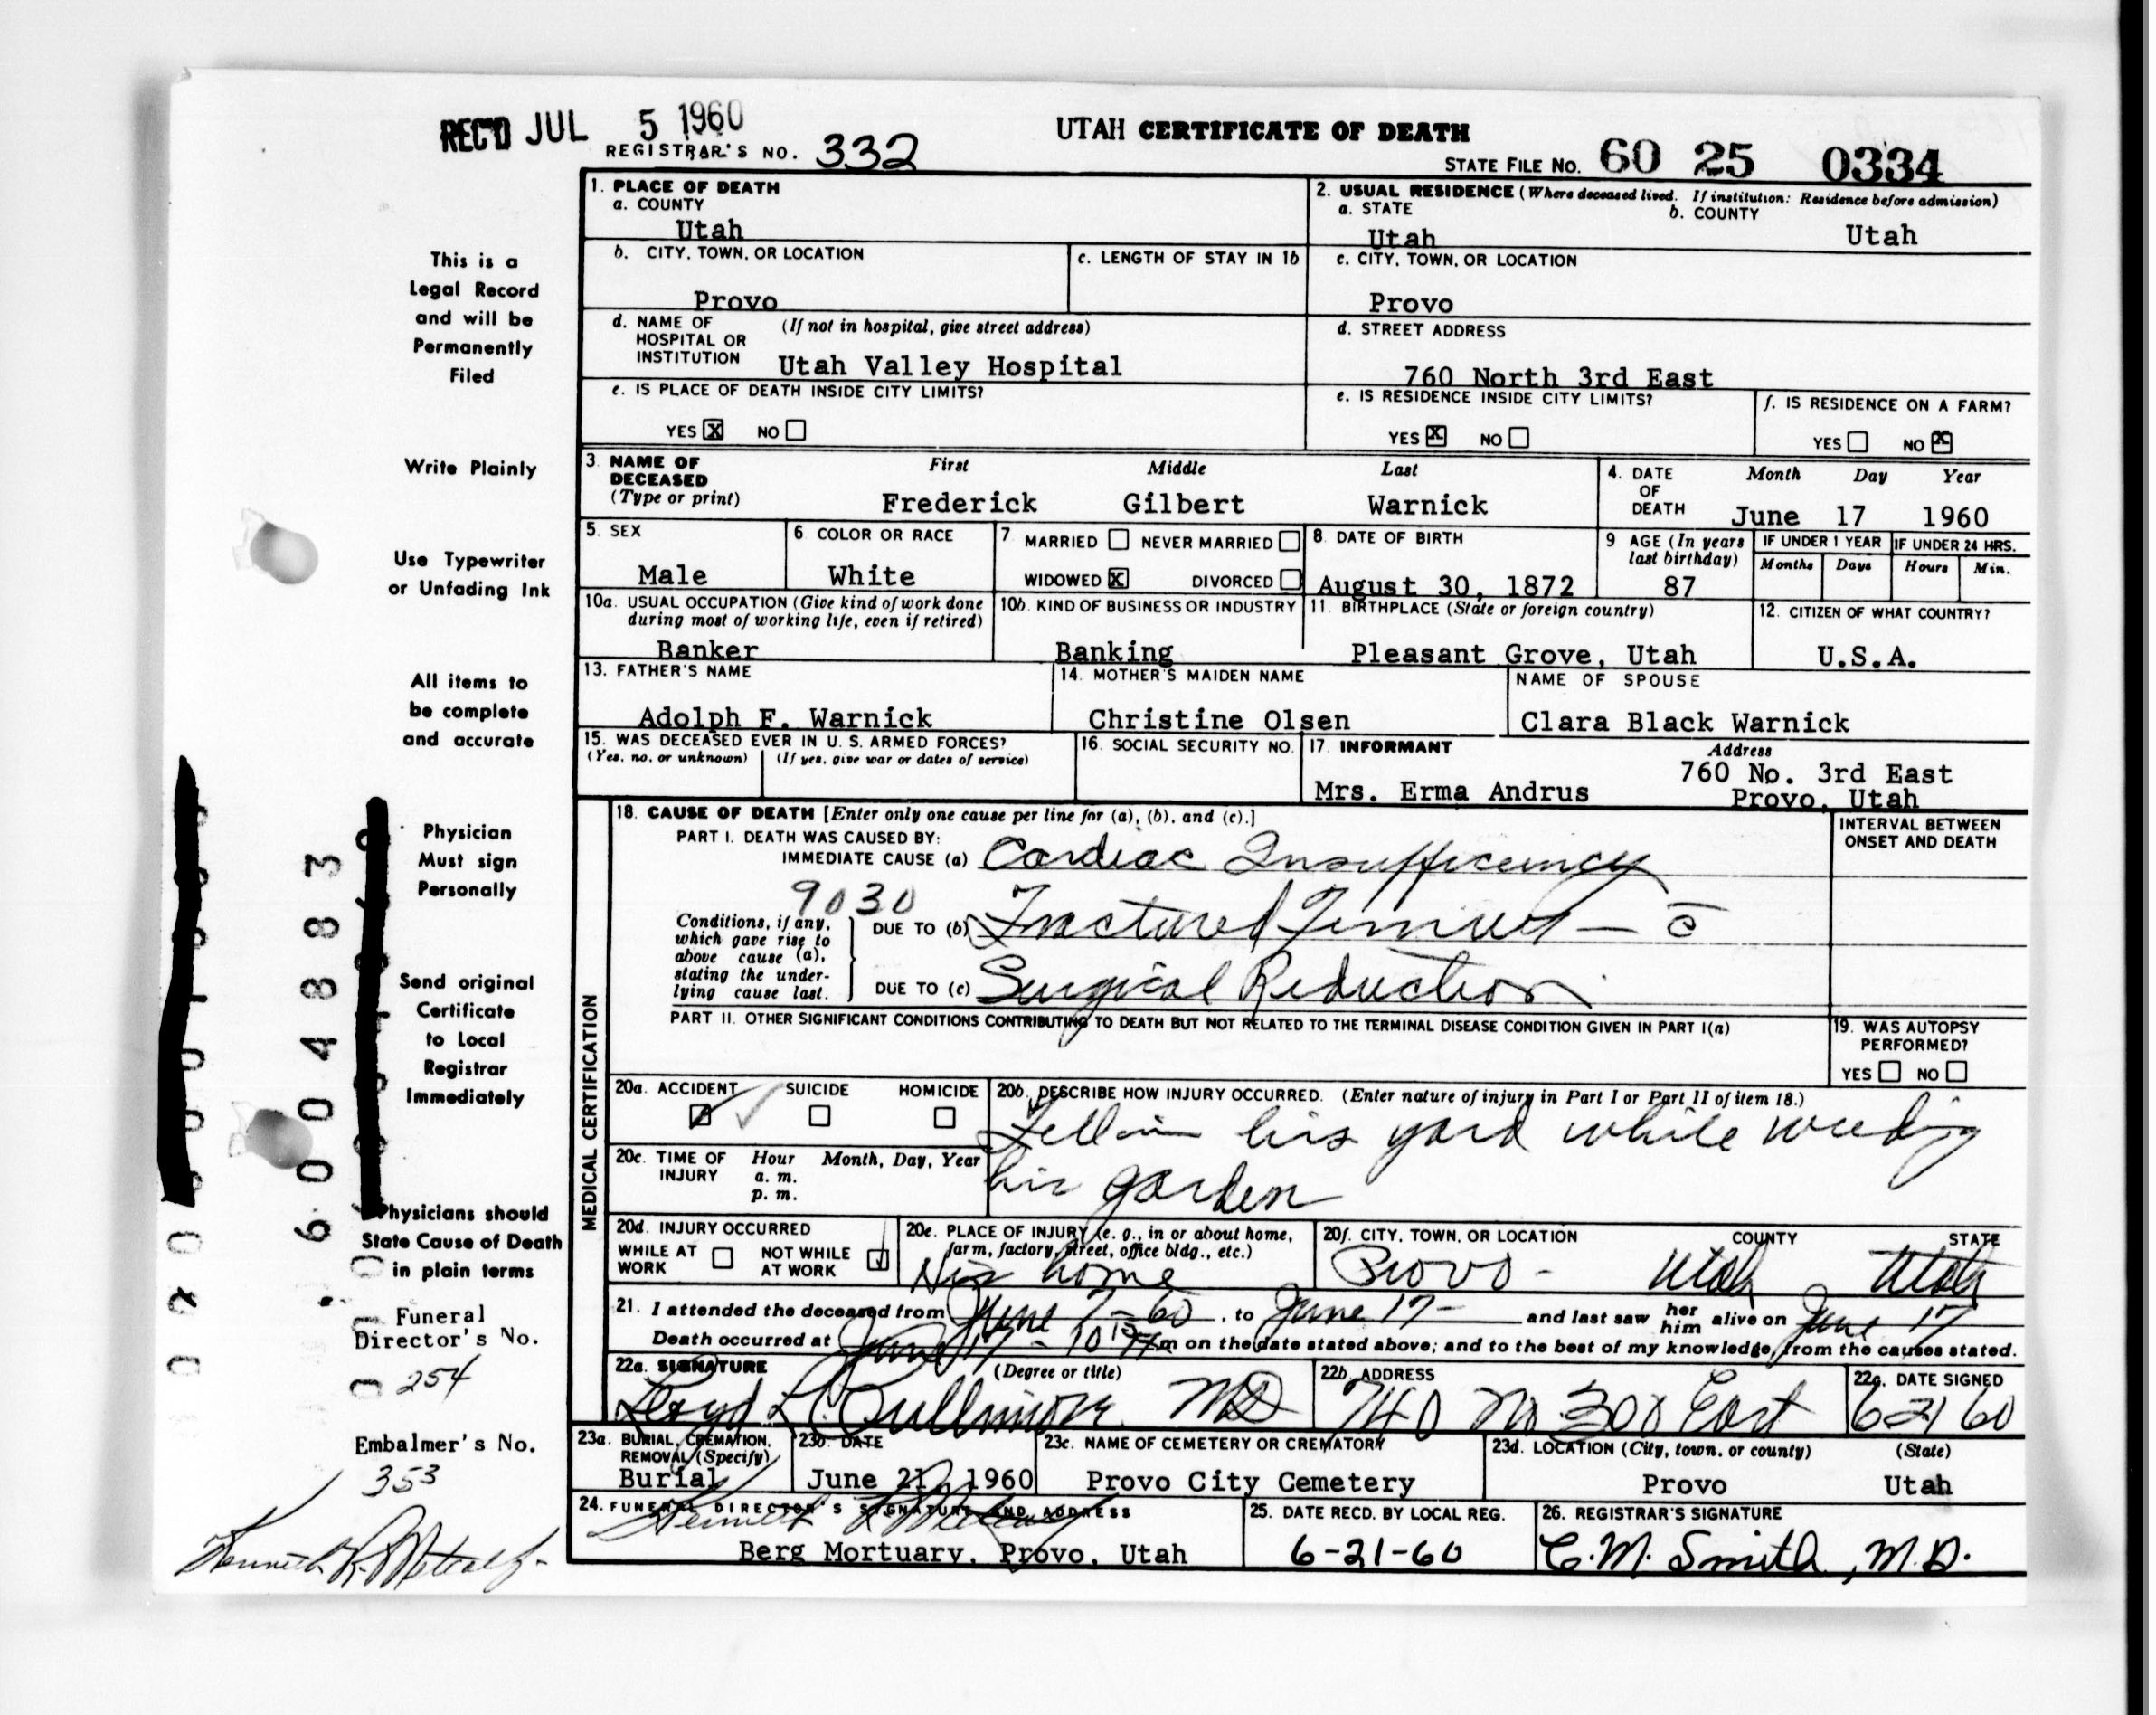 REC'D JUL 5 1960
REGISTRAR'S NO. 332
UTAH CERTIFICATE OF DEATH
STATE FILE NO. 60 25 0334
1. PLACE OF DEATH
a. COUNTY
Utah
2. USUAL RESIDENCE (Where deceased lived. If institution: Residence before admission)
a. STATE
Utah
b. COUNTY
Utah
b. CITY, TOWN, OR LOCATION
Provo
c. LENGTH OF STAY IN 1b
c. CITY, TOWN, OR LOCATION
Provo
d. NAME OF HOSPITAL OR INSTITUTION (If not in hospital, give street address)
Utah Valley Hospital
d. STREET ADDRESS
760 North 3rd East
e. IS PLACE OF DEATH INSIDE CITY LIMITS?
YES X NO
e. IS RESIDENCE INSIDE CITY LIMITS?
YES X NO
f. IS RESIDENCE ON A FARM?
YES NO X
3. NAME OF DECEASED (Type or print)
First Middle Last
Frederick Gilbert Warnick
4. DATE OF DEATH
Month Day Year
June 17 1960
5. SEX
Male
6 COLOR OR RACE
White
7 MARRIED NEVER MARRIED
WIDOWED X DIVORCED
8. DATE OF BIRTH
August 30, 1872
9 AGE (In years last birthday)
87
IF UNDER 1 YEAR
Months Days
IF UNDER 24 HRS.
Hours Min.
10a. USUAL OCCUPATION (Give kind of work done during most of working life, even if retired)
Banker
10b. KIND OF BUSINESS OR INDUSTRY
Banking
11. BIRTHPLACE (State or foreign country)
Pleasant Grove, Utah
12. CITIZEN OF WHAT COUNTRY?
U.S.A.
13. FATHER'S NAME
Adolph F. Warnick
14. MOTHER'S MAIDEN NAME
Christine Olsen
NAME OF SPOUSE
Clara Black Warnick
15. WAS DECEASED EVER IN U. S. ARMED FORCES?
(Yes, no, or unknown) (If yes, give war or dates of service)
16. SOCIAL SECURITY NO.
17. INFORMANT
Mrs. Erma Andrus
Address
760 No. 3rd East
Provo, Utah
MEDICAL CERTIFICATION
18. CAUSE OF DEATH [Enter only one cause per line for (a), (b), and (c).]
INTERVAL BETWEEN ONSET AND DEATH
PART I. DEATH WAS CAUSED BY:
IMMEDIATE CAUSE (a) Cardiac Insufficiency
9030
Conditions, if any, which gave rise to above cause (a), stating the underlying cause last.
DUE TO (b) Fractured Femur — c̄
DUE TO (c) Surgical Reduction
PART II. OTHER SIGNIFICANT CONDITIONS CONTRIBUTING TO DEATH BUT NOT RELATED TO THE TERMINAL DISEASE CONDITION GIVEN IN PART I(a)
19. WAS AUTOPSY PERFORMED?
YES NO
20a. ACCIDENT SUICIDE HOMICIDE
20b. DESCRIBE HOW INJURY OCCURRED. (Enter nature of injury in Part I or Part II of item 18.)
Fell in his yard while weeding
his garden
20c. TIME OF INJURY Hour Month, Day, Year
a. m.
p. m.
20d. INJURY OCCURRED
WHILE AT WORK NOT WHILE AT WORK
20e. PLACE OF INJURY (e. g., in or about home, farm, factory, street, office bldg., etc.)
His home
20f. CITY, TOWN, OR LOCATION COUNTY STATE
Provo - Utah Utah
21. I attended the deceased from June 7-60, to June 17- and last saw her him alive on June 17
Death occurred at June 17 - 10 15 m on the date stated above; and to the best of my knowledge, from the causes stated.
22a. SIGNATURE (Degree or title)
Lloyd L Cullimore MD
22b. ADDRESS
740 No 300 East
22c. DATE SIGNED
6 21 60
23a. BURIAL, CREMATION, REMOVAL (Specify)
Burial
23b. DATE
June 21, 1960
23c. NAME OF CEMETERY OR CREMATORY
Provo City Cemetery
23d. LOCATION (City, town, or county) (State)
Provo Utah
24. FUNERAL DIRECTOR'S SIGNATURE AND ADDRESS
Kenneth R Metcalf
Berg Mortuary, Provo, Utah
25. DATE RECD. BY LOCAL REG.
6-21-60
26. REGISTRAR'S SIGNATURE
C.M. Smith, M.D.
This is a
Legal Record
and will be
Permanently
Filed
Write Plainly
Use Typewriter
or Unfading Ink
All items to
be complete
and accurate
Physician
Must sign
Personally
Send original
Certificate
to Local
Registrar
Immediately
Physicians should
State Cause of Death
in plain terms
Funeral
Director's No.
254
Embalmer's No.
353
Kenneth R Metcalf
6004883